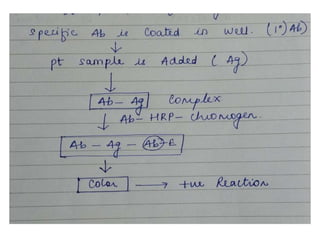 specific Ab is Coated in well. (1° Ab)
pt sample is Added ( Ag)
Ab - Ag Complex
Ab - HRP - chromogen.
Ab - Ag - Ab - E
Color → +ve Reaction